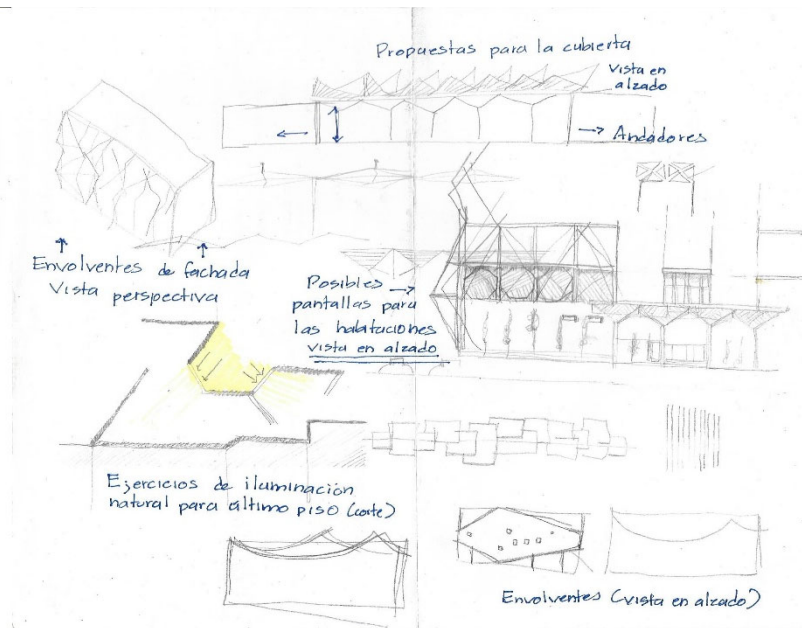 Propuestas para la cubierta
Vista en
alzado
Andadores
Envolventes de fachada
Vista perspectiva
Posibles
pantallas para
las habitaciones
vista en alzado
Ejercicios de iluminación
natural para último piso (corte)
Envolventes (vista en alzado)